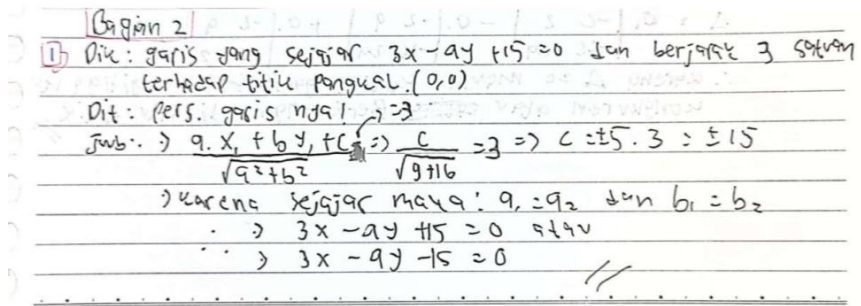 Bagian 2
1) Dik : garis yang sejajar 3x - ay + 15 = 0 dan berjarak 3 satuan
terhadap titik pangkal (0,0)
Dit : Pers. garis nya! = 3
Jwb : → a.x₁ + by₁ + C / √(a²+b²) => C / √(9+16) = 3 => C = ±5 . 3 = ±15
→ karena sejajar maka : a₁ = a₂ dan b₁ = b₂
∴ → 3x - ay + 15 = 0 atau
→ 3x - 9y - 15 = 0